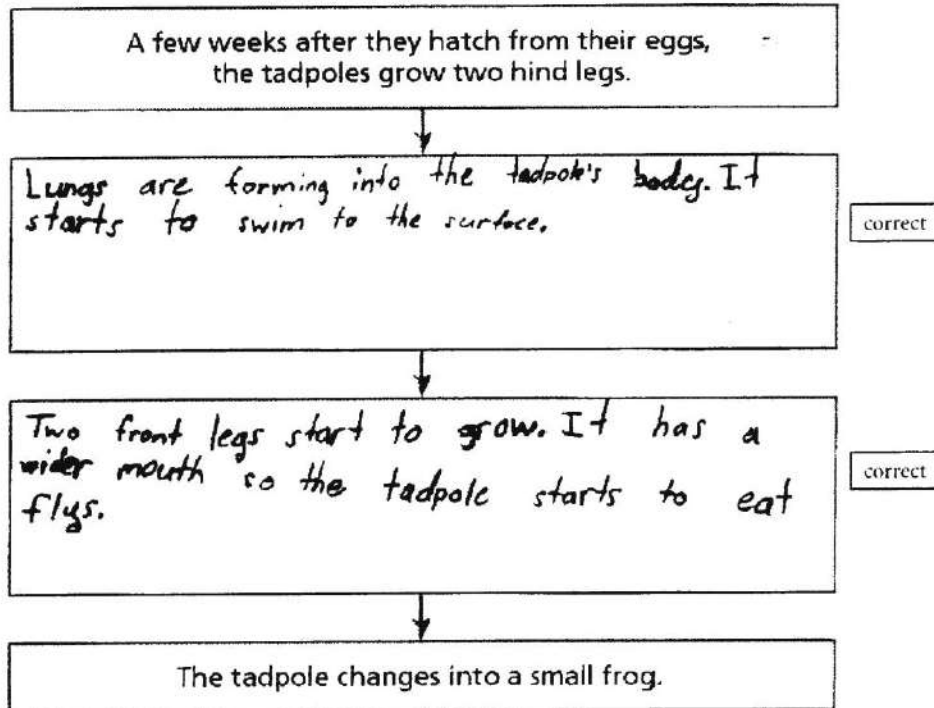 A few weeks after they hatch from their eggs,
the tadpoles grow two hind legs.
Lungs are forming into the tadpole's body. It
starts to swim to the surface.
correct
Two front legs start to grow. It has a
wider mouth so the tadpole starts to eat
flys.
correct
The tadpole changes into a small frog.